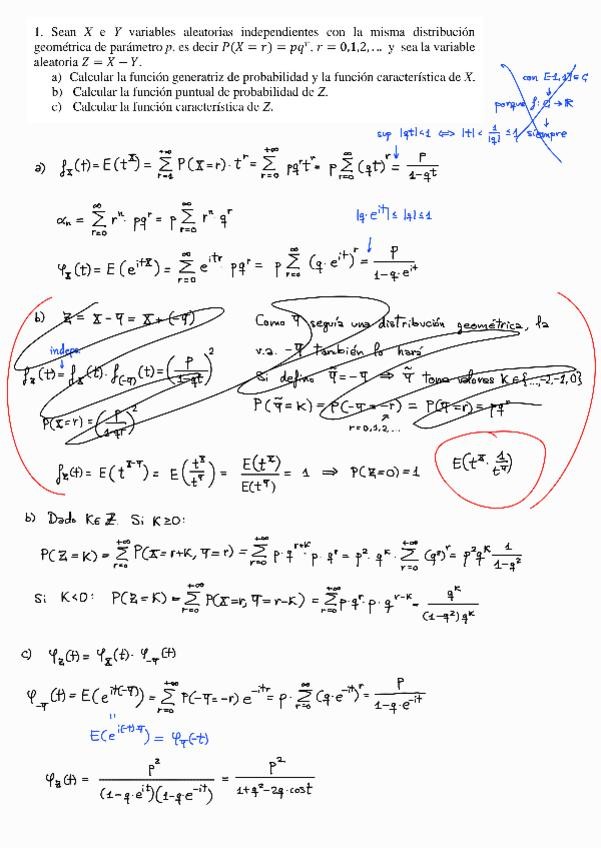 1. Sean X e Y variables aleatorias independientes con la misma distribución
geométrica de parámetro p. es decir P(X = r) = pqʳ, r = 0,1,2,... y sea la variable
aleatoria Z = X − Y.
a) Calcular la función generatriz de probabilidad y la función característica de X.
b) Calcular la función puntual de probabilidad de Z.
c) Calcular la función característica de Z.
con [-1,1] = G
porque f: G → ℝ
sup |qt|<1 ⟺ |t| < 1/|q| ≤ 1 siempre
a) f_X(t) = E(t^X) = Σ_{r=1}^{+∞} P(X=r)·t^r = Σ_{r=0}^{+∞} pq^r t^r = p Σ_{r=0}^{∞} (qt)^r = p/(1-qt)
α_n = Σ_{r=0}^{∞} r^n · pq^r = p Σ_{r=0}^{∞} r^n q^r
|q·e^{it}| ≤ |q| ≤ 1
φ_X(t) = E(e^{itX}) = Σ_{r=0}^{∞} e^{itr} pq^r = p Σ_{r=0}^{∞} (q·e^{it})^r = p/(1-q·e^{it})
b) Z = X - Y = X + (-Y)
Como Y seguía una distribución geométrica, la
indep.
v.a. -Y también lo hará
f_Z(t) = f_X(t)·f_{(-Y)}(t) = (p/(1-qt))^2
Si defino Ỹ = -Y ⇒ Ỹ toma valores K∈{...,-2,-1,0}
P(Ỹ=K) = P(-Y=-r) = P(Y=r) = pq^r
r=0,1,2,...
P(X=r) = (p/(1-qr))^2
f_Z(t) = E(t^{X-Y}) = E(t^X/t^Y) = E(t^X)/E(t^Y) = 1 ⇒ P(Z=0)=1
E(t^X · 1/t^Y)
b) Dado K∈ℤ. Si K≥0:
P(Z=K) = Σ_{r=0}^{+∞} P(X=r+K, Y=r) = Σ_{r=0}^{+∞} p·q^{r+K}·p·q^r = p²·q^K·Σ_{r=0}^{+∞} (q²)^r = p²q^K 1/(1-q²)
Si K<0: P(Z=K) = Σ_{r=0}^{+∞} P(X=r, Y=r-K) = Σ_{r=0}^{+∞} p·q^r·p·q^{r-K} = q^K/((1-q²)q^K)
c) φ_Z(t) = φ_X(t)·φ_{-Y}(t)
φ_{-Y}(t) = E(e^{it(-Y)}) = Σ_{r=0}^{+∞} P(-Y=-r) e^{-itr} = p·Σ_{r=0}^{∞} (q·e^{-it})^r = p/(1-q·e^{-it})
"
E(e^{i(-t)·Y}) = φ_Y(-t)
φ_Z(t) = p²/((1-q·e^{it})(1-q·e^{-it})) = p²/(1+q²-2q·cost)